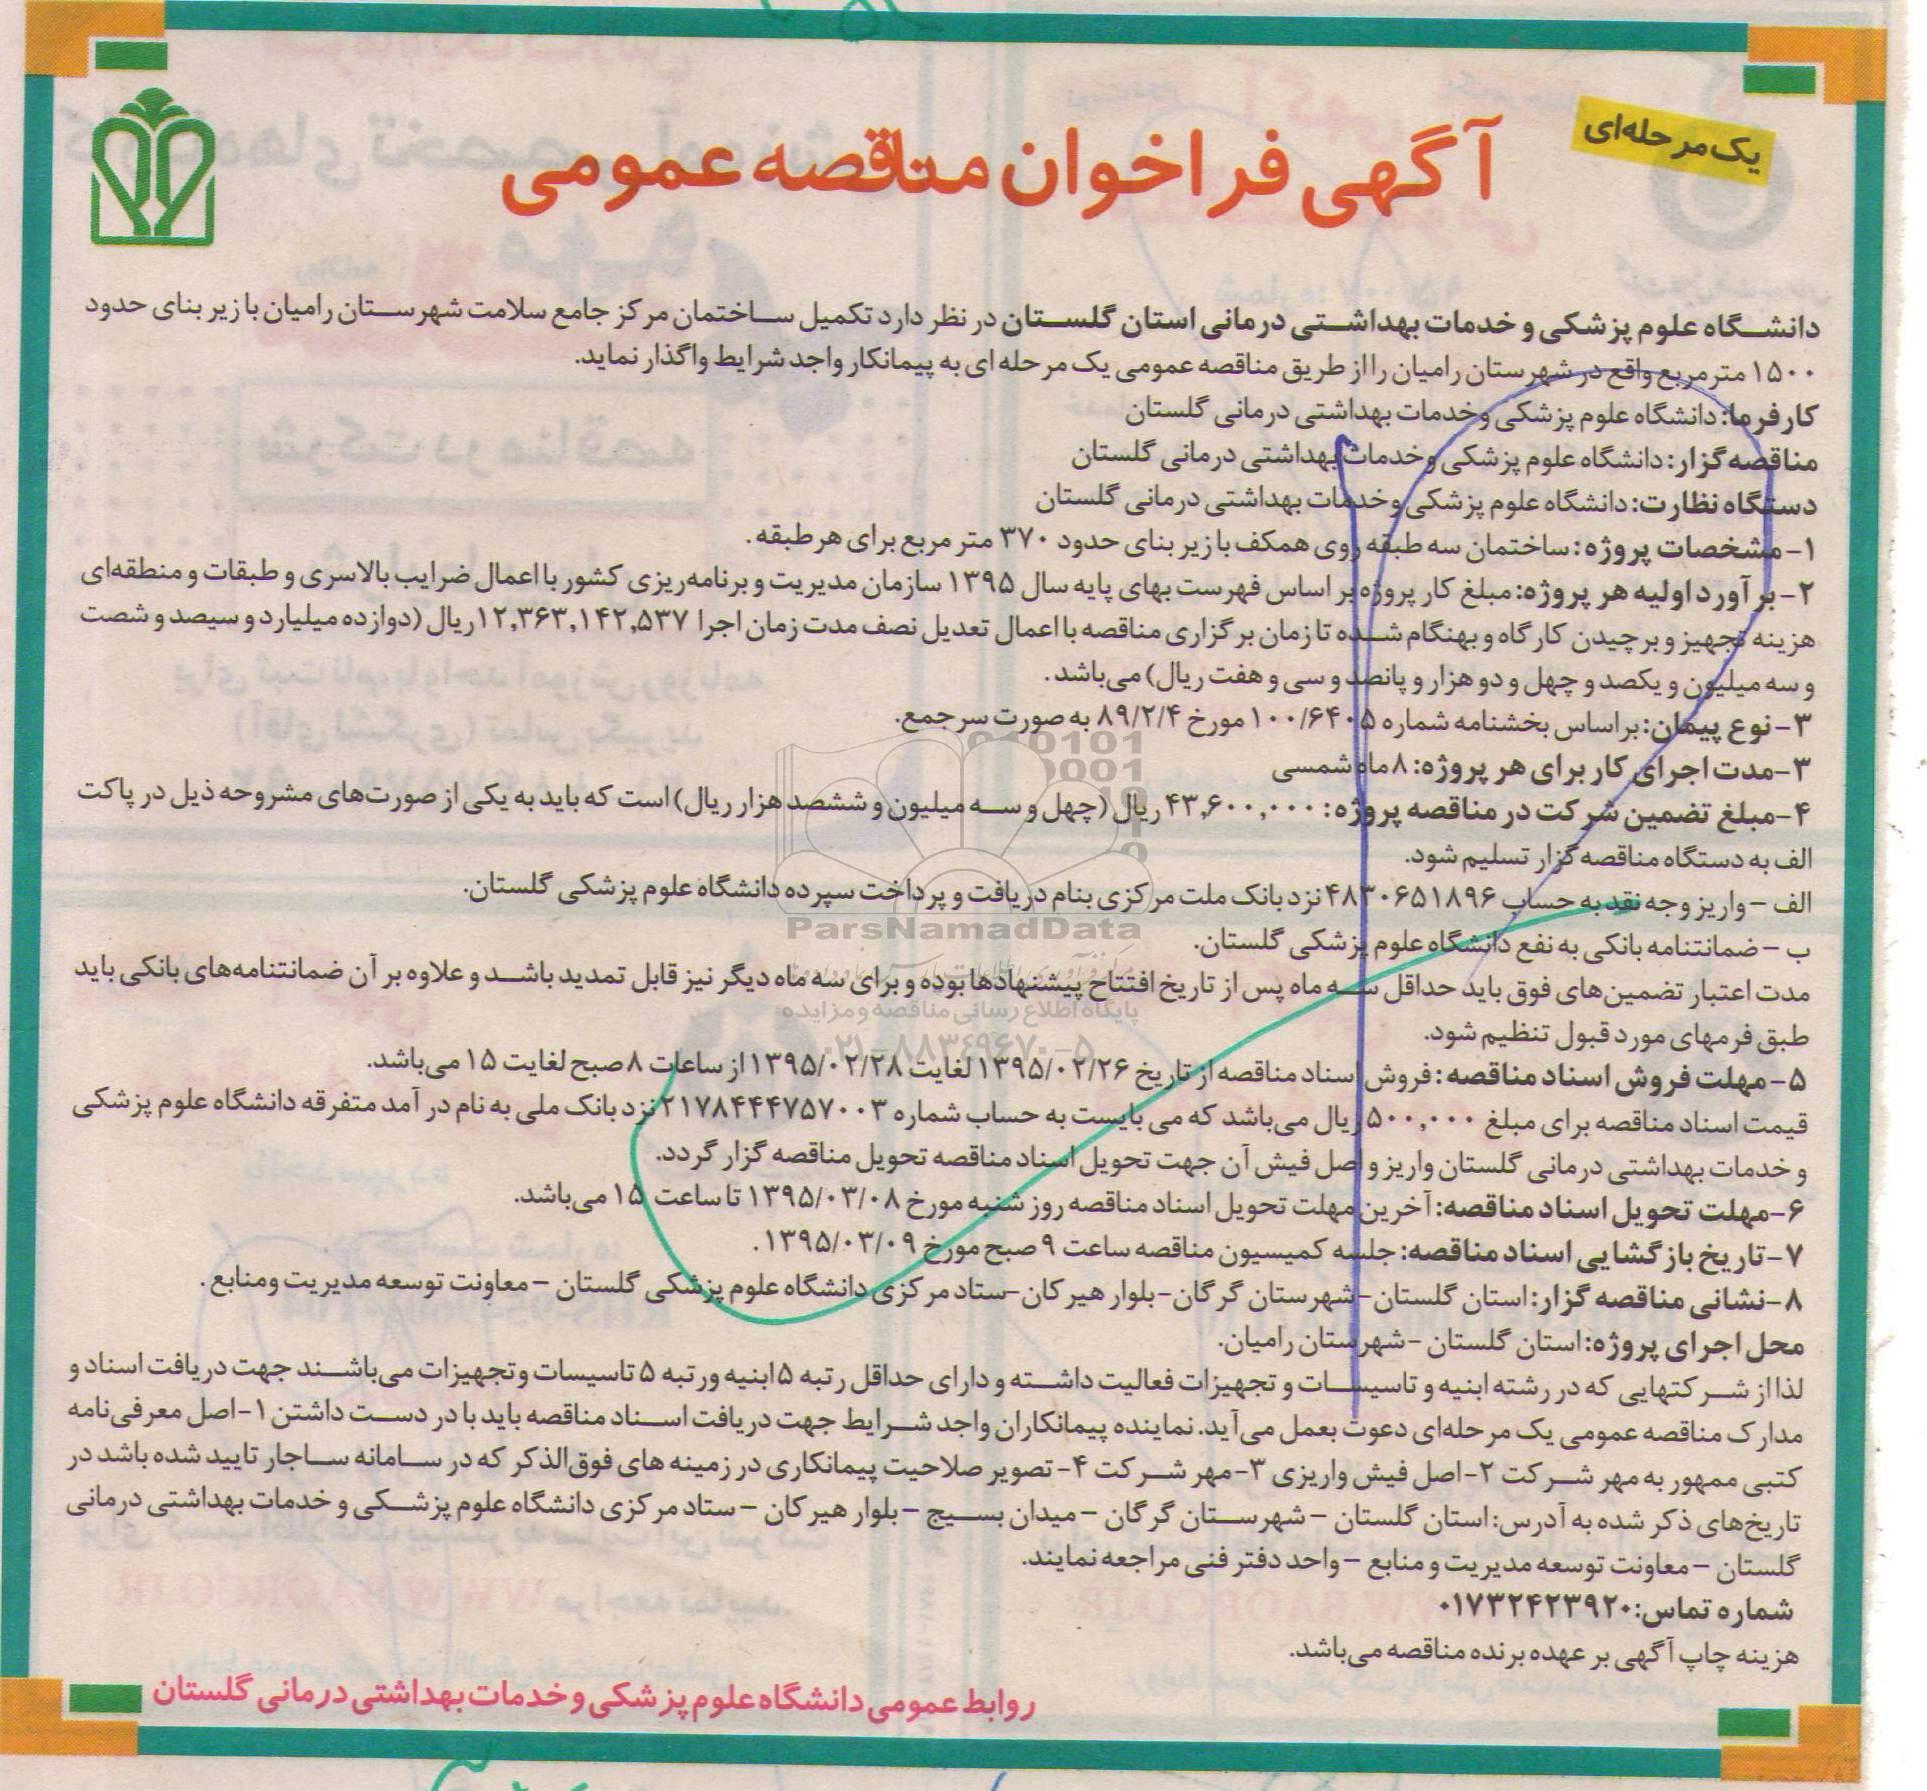 یک مرحله‌ای
آگهی فراخوان مناقصه عمومی
دانشگاه علوم پزشکی و خدمات بهداشتی درمانی استان گلستان در نظر دارد تکمیل ساختمان مرکز جامع سلامت شهرستان رامیان با زیر بنای حدود
۱۵۰۰ مترمربع واقع در شهرستان رامیان را از طریق مناقصه عمومی یک مرحله ای به پیمانکار واجد شرایط واگذار نماید.
کارفرما: دانشگاه علوم پزشکی وخدمات بهداشتی درمانی گلستان
مناقصه گزار: دانشگاه علوم پزشکی وخدمات بهداشتی درمانی گلستان
دستگاه نظارت: دانشگاه علوم پزشکی وخدمات بهداشتی درمانی گلستان
۱- مشخصات پروژه: ساختمان سه طبقه روی همکف با زیر بنای حدود ۳۷۰ متر مربع برای هر طبقه.
۲- برآورد اولیه هر پروژه: مبلغ کار پروژه بر اساس فهرست بهای پایه سال ۱۳۹۵ سازمان مدیریت و برنامه‌ریزی کشور با اعمال ضرایب بالاسری و طبقات و منطقه‌ای
هزینه تجهیز و برچیدن کارگاه و بهنگام شده تا زمان برگزاری مناقصه با اعمال تعدیل نصف مدت زمان اجرا ۱۲,۳۶۳,۱۴۲,۵۳۷ ریال (دوازده میلیارد و سیصد و شصت
و سه میلیون و یکصد و چهل و دو هزار و پانصد و سی و هفت ریال) می‌باشد.
۳- نوع پیمان: براساس بخشنامه شماره ۱۰۰/۶۴۰۵ مورخ ۸۹/۲/۴ به صورت سرجمع.
۳-مدت اجرای کار برای هر پروژه: ۸ ماه شمسی
۴-مبلغ تضمین شرکت در مناقصه پروژه: ۴۳,۶۰۰,۰۰۰ ریال (چهل و سه میلیون و ششصد هزار ریال) است که باید به یکی از صورت‌های مشروحه ذیل در پاکت
الف به دستگاه مناقصه گزار تسلیم شود.
الف - واریز وجه نقد به حساب ۴۸۳۰۶۵۱۸۹۶ نزد بانک ملت مرکزی بنام دریافت و پرداخت سپرده دانشگاه علوم پزشکی گلستان.
ParsNamadData
ب - ضمانتنامه بانکی به نفع دانشگاه علوم پزشکی گلستان.
مدت اعتبار تضمین‌های فوق باید حداقل سه ماه پس از تاریخ افتتاح پیشنهادها بوده و برای سه ماه دیگر نیز قابل تمدید باشد و علاوه بر آن ضمانتنامه‌های بانکی باید
پایگاه اطلاع رسانی مناقصه و مزایده
طبق فرمهای مورد قبول تنظیم شود.
۰۲۱-۸۸۳۴۹۶۷۰-۵
۵- مهلت فروش اسناد مناقصه: فروش اسناد مناقصه از تاریخ ۱۳۹۵/۰۲/۲۶ لغایت ۱۳۹۵/۰۲/۲۸ از ساعات ۸ صبح لغایت ۱۵ می‌باشد.
قیمت اسناد مناقصه برای مبلغ ۵۰۰,۰۰۰ ریال می‌باشد که می بایست به حساب شماره ۲۱۷۸۴۴۴۷۵۷۰۰۳ نزد بانک ملی به نام در آمد متفرقه دانشگاه علوم پزشکی
و خدمات بهداشتی درمانی گلستان واریز و اصل فیش آن جهت تحویل اسناد مناقصه تحویل مناقصه گزار گردد.
۶-مهلت تحویل اسناد مناقصه: آخرین مهلت تحویل اسناد مناقصه روز شنبه مورخ ۱۳۹۵/۰۳/۰۸ تا ساعت ۱۵ می‌باشد.
۷- تاریخ بازگشایی اسناد مناقصه: جلسه کمیسیون مناقصه ساعت ۹ صبح مورخ ۱۳۹۵/۰۳/۰۹.
۸-نشانی مناقصه گزار: استان گلستان-شهرستان گرگان-بلوار هیرکان-ستاد مرکزی دانشگاه علوم پزشکی گلستان - معاونت توسعه مدیریت ومنابع.
محل اجرای پروژه: استان گلستان -شهرستان رامیان.
لذا از شرکتهایی که در رشته ابنیه و تاسیسات و تجهیزات فعالیت داشته و دارای حداقل رتبه ۵ ابنیه ورتبه ۵ تاسیسات وتجهیزات می‌باشند جهت دریافت اسناد و
مدارک مناقصه عمومی یک مرحله‌ای دعوت بعمل می‌آید. نماینده پیمانکاران واجد شرایط جهت دریافت اسناد مناقصه باید با در دست داشتن ۱-اصل معرفی‌نامه
کتبی ممهور به مهر شرکت ۲-اصل فیش واریزی ۳-مهر شرکت ۴-تصویر صلاحیت پیمانکاری در زمینه های فوق‌الذکر که در سامانه ساجار تایید شده باشد در
تاریخ‌های ذکر شده به آدرس: استان گلستان - شهرستان گرگان - میدان بسیج - بلوار هیرکان - ستاد مرکزی دانشگاه علوم پزشکی و خدمات بهداشتی درمانی
گلستان - معاونت توسعه مدیریت و منابع - واحد دفتر فنی مراجعه نمایند.
شماره تماس: ۰۱۷۳۲۴۲۳۹۲۰
هزینه چاپ آگهی بر عهده برنده مناقصه می‌باشد.
روابط عمومی دانشگاه علوم پزشکی و خدمات بهداشتی درمانی گلستان